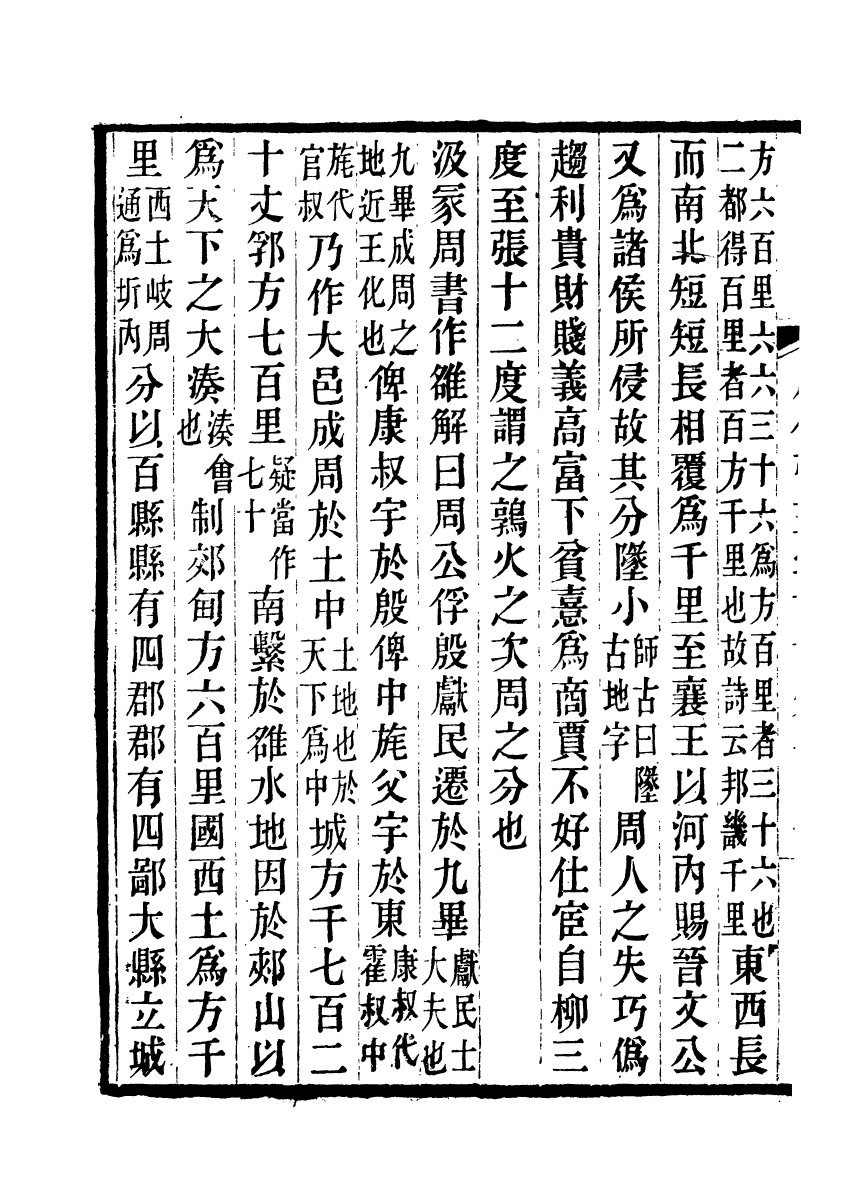 方六百里六六三十六爲方百里者三十六也二都得百里者百方千里也故詩云邦畿千里東西長
而南北短短長相覆爲千里至襄王以河內賜晉文公
又爲諸侯所侵故其分墬小師古曰墬古地字周人之失巧僞
趨利貴財賤義高富下貧憙爲商賈不好仕宦自柳三
度至張十二度謂之鶉火之次周之分也
汲冢周書作雒解曰周公俘殷獻民遷於九畢獻民士大夫也
九畢成周之地近王化也俾康叔宇於殷俾中旄父宇於東康叔代霍叔中
旄代官叔乃作大邑成周於土中土地也於天下爲中城方千七百二
十丈郛方七百里疑當作七十南繫於雒水地因於郟山以
爲天下之大湊湊會也制郊甸方六百里國西土爲方千
里西土岐周通爲圻內分以百縣縣有四郡郡有四鄙大縣立城